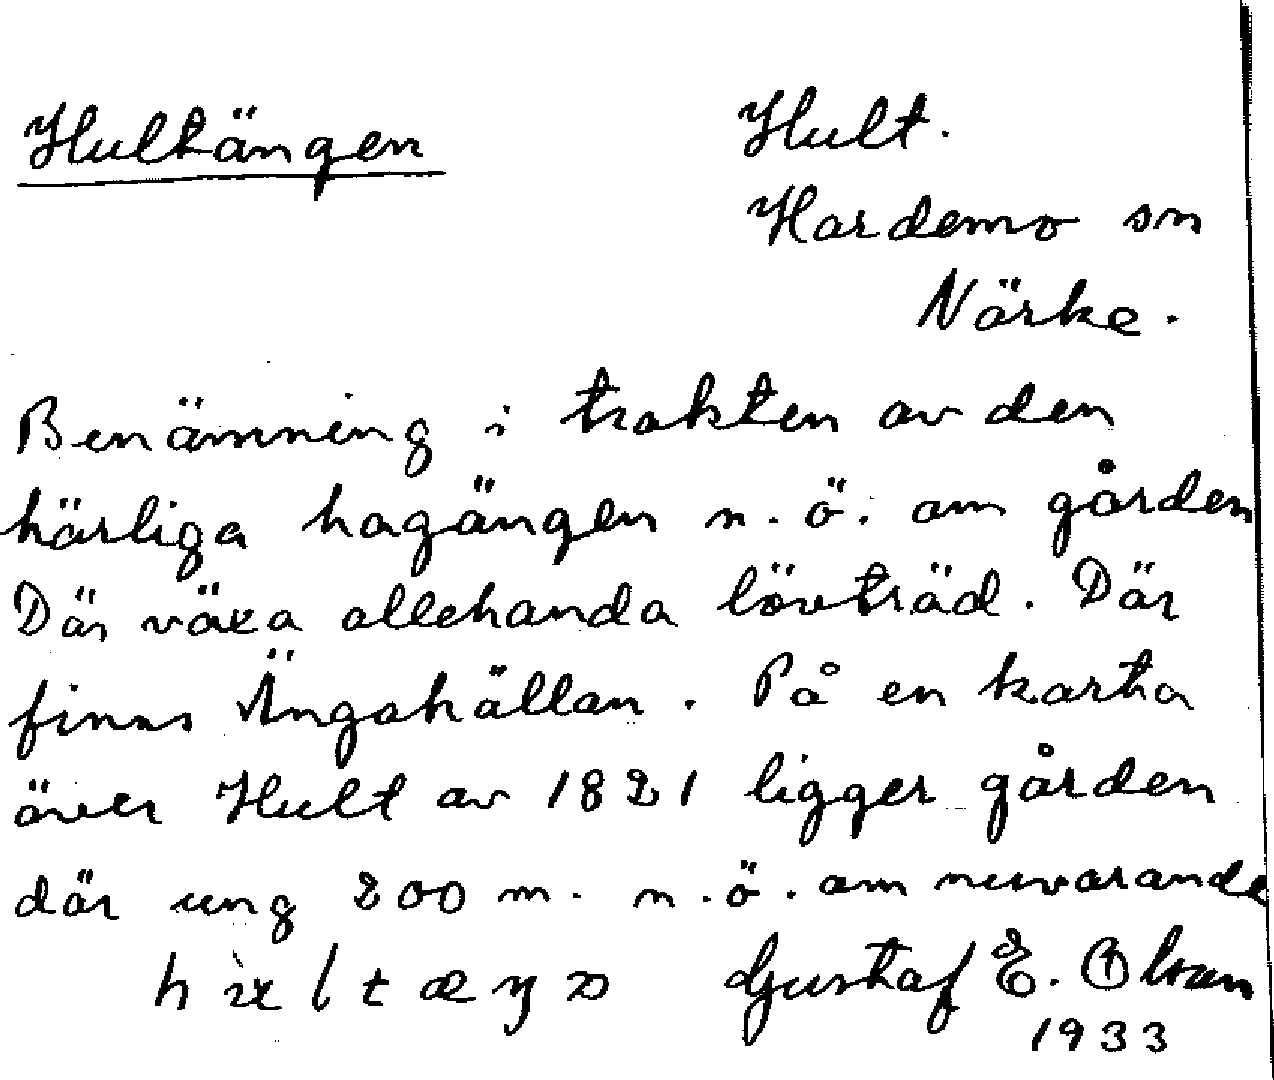 Hultängen
Hult.
Hardemo sn
Närke.
Benämning i trakten av den
härliga hagängen n. ö. om gården
Där växa allehanda lövträd. Där
finns Ängahällan. På en karta
över Hult av 1821 ligger gården
där ung 200 m. n. ö. om nuvarande
Gustaf E. Olson
1933